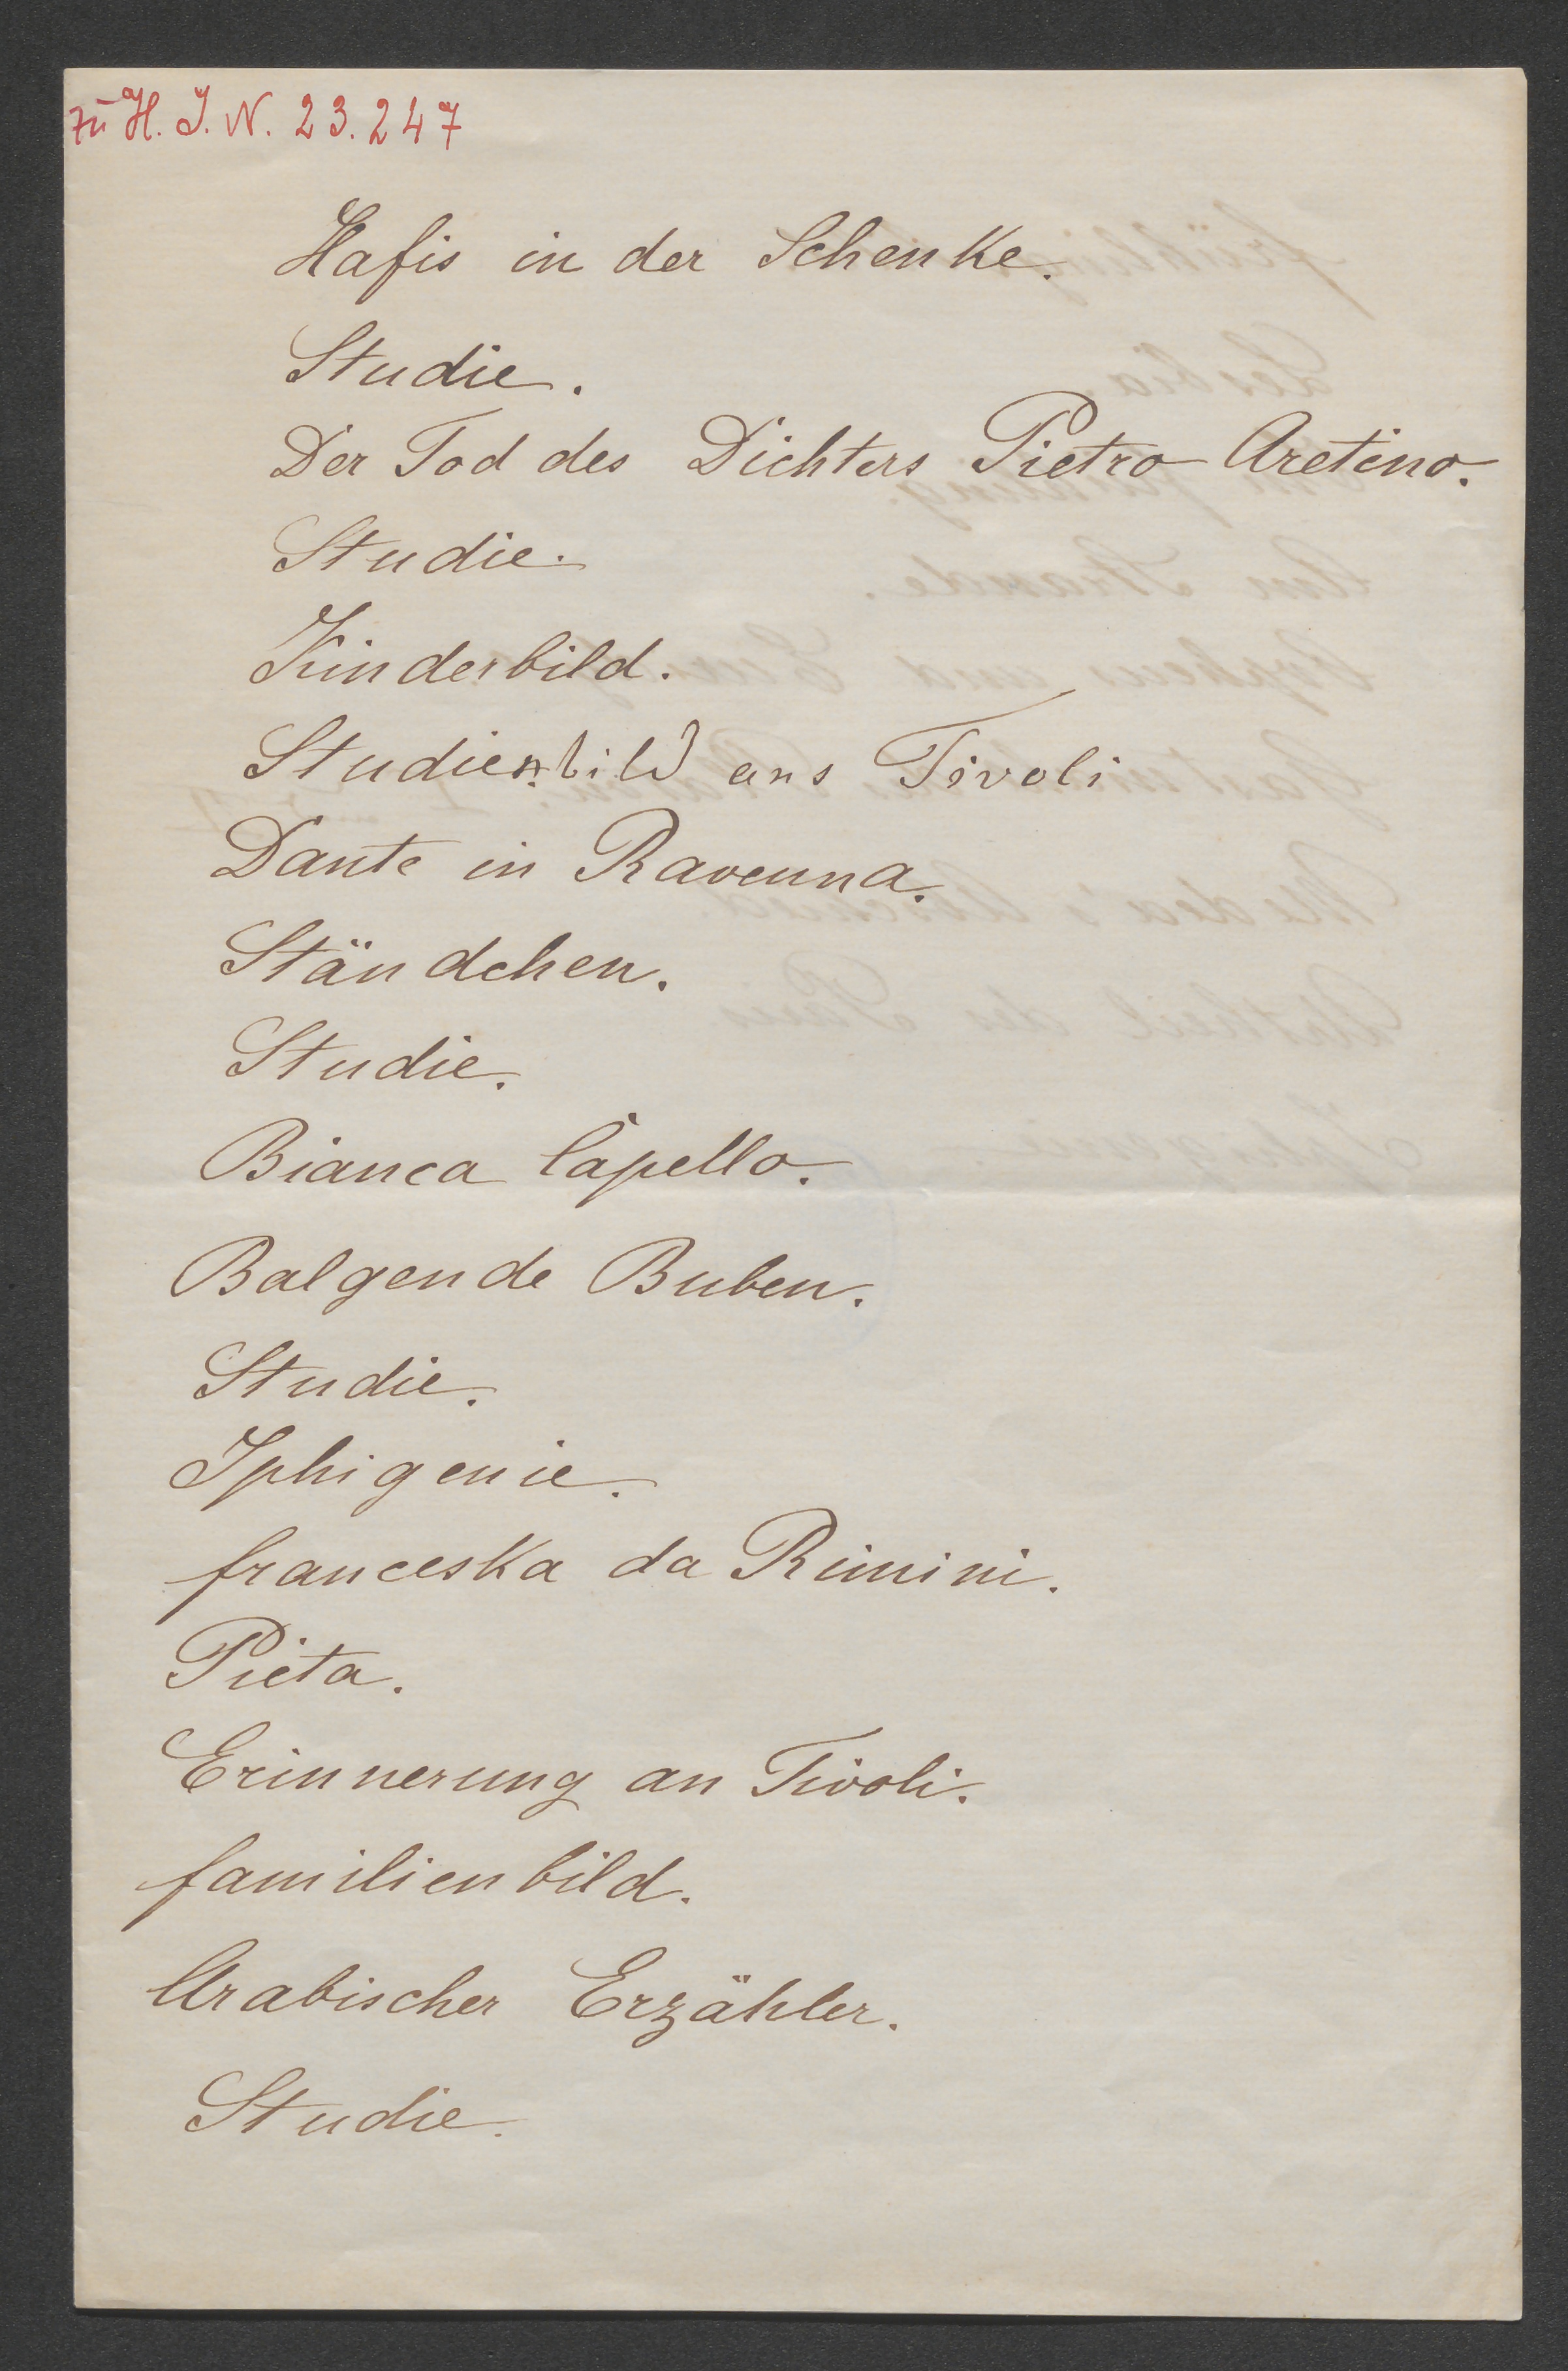 zu H. I. N. 23.247
Hafis in der Schenke.
Studie.
Der Tod des Dichters Pietro Aretino.
Studie.
Kinderbild.
Studienbild aus Tivoli
Dante in Ravenna.
Ständchen.
Studie.
Bianca Capello.
Balgende Buben.
Studie.
Iphigenie.
franceska da Rimini.
Pieta.
Erinnerung an Tivoli.
familienbild.
Arabischer Erzähler.
Studie.